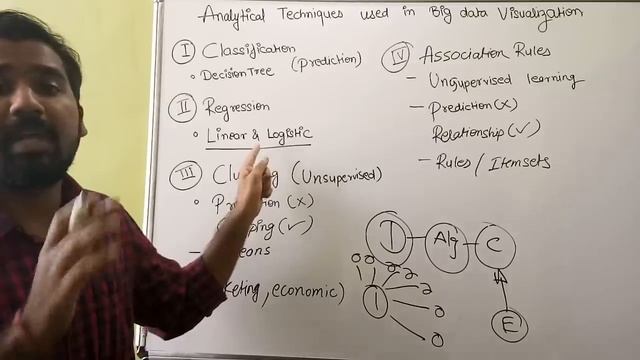 Analytical Techniques used in Big data Visualization
I Classification
Decision Tree (Prediction)
II Regression
Linear & Logistic
III (Unsupervised)
(X)
(✓)
, economic)
IV Association Rules
- Unsupervised learning
- Prediction (X)
Relationship (✓)
- Rules / Itemsets
D Alg C
I
E